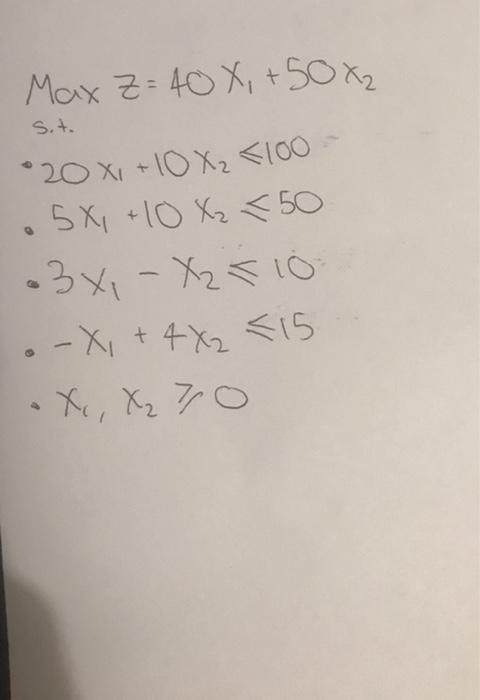 Max Z = 40X₁ + 50X₂
s.t.
• 20X₁ + 10X₂ ≤ 100
• 5X₁ + 10X₂ ≤ 50
• 3X₁ - X₂ ≤ 10
• -X₁ + 4X₂ ≤ 15
• X₁, X₂ ≥ 0